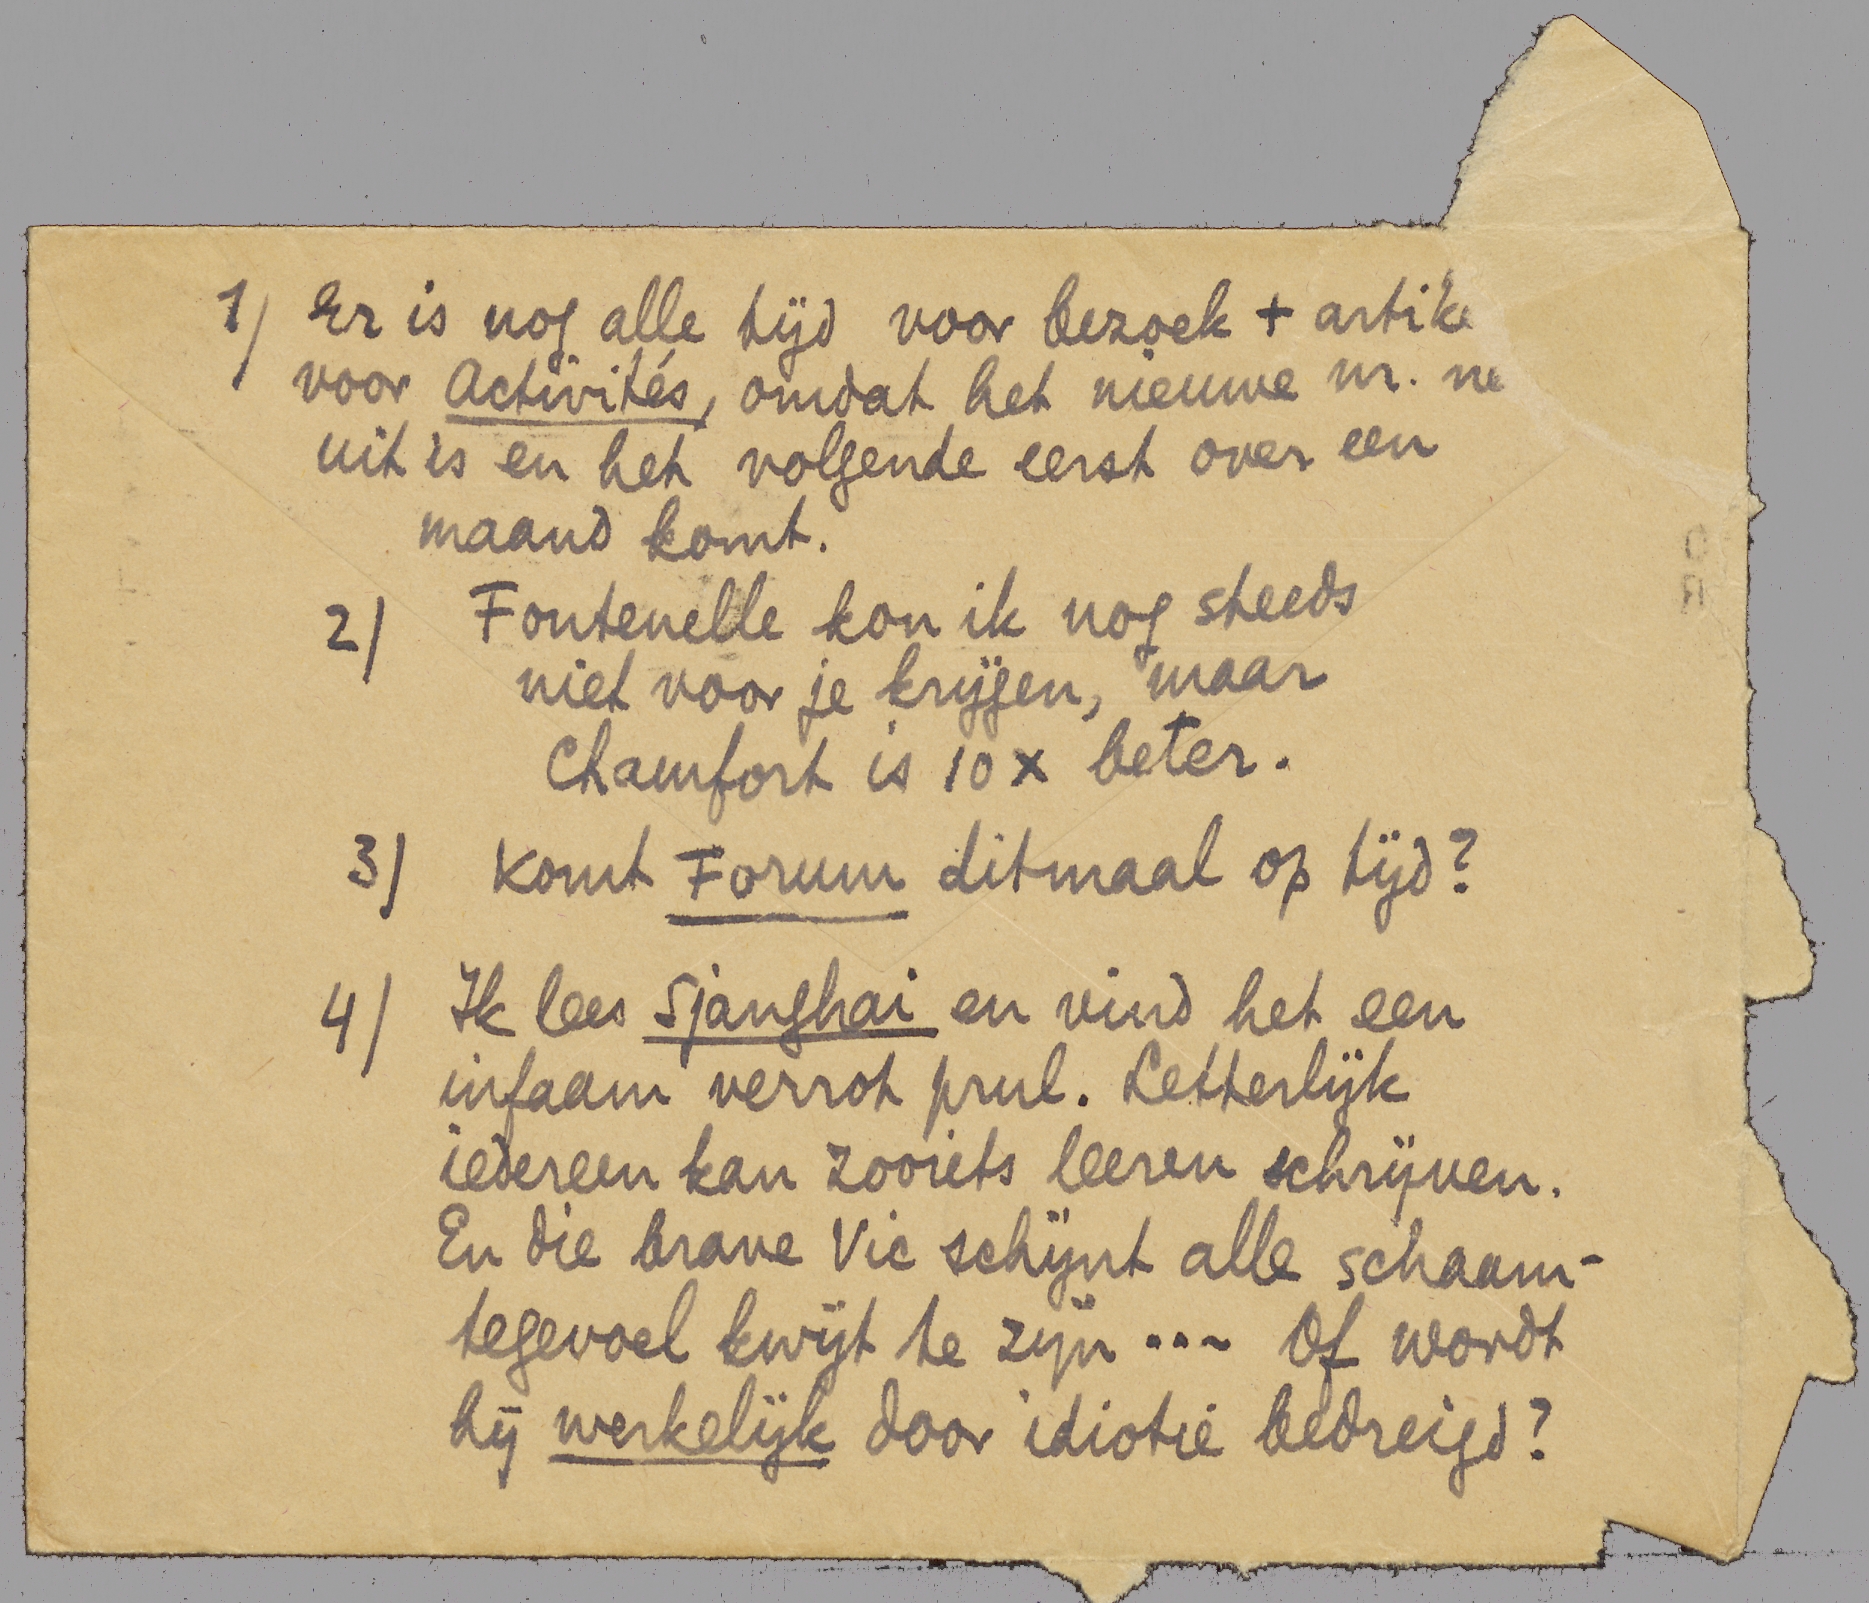 1) Er is nog alle tijd voor bezoek + artike
voor Activités, omdat het nieuwe nr. ne
uit is en het volgende eerst over een
maand komt.
2) Fontenelle kon ik nog steeds
niet voor je krijgen, maar
Chamfort is 10 x beter.
3) Komt Forum ditmaal op tijd?
4) Ik lees Sjanghai en vind het een
infaam verrot prul. Letterlijk
iedereen kan zooiets leeren schrijven.
En die brave Vic schijnt alle schaam-
tegevoel kwijt te zijn ... Of wordt
hij werkelijk door idiotie bedreigd?